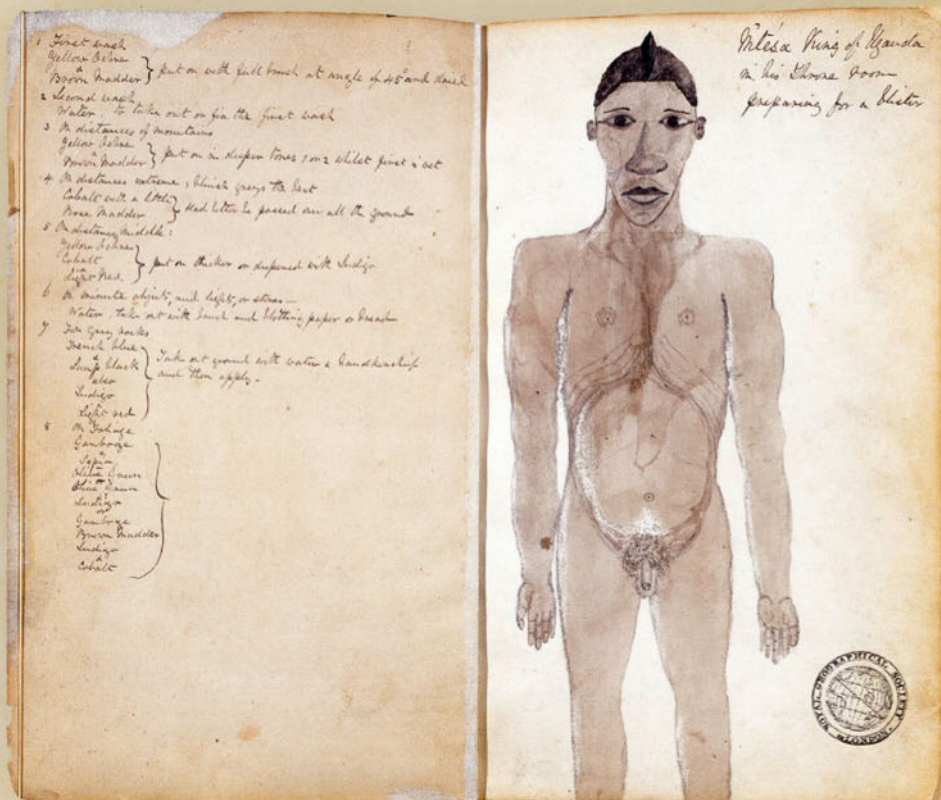 1 First wash
Yellow Ochre
&
Brown Madder } put on with full brush at angle of 45° and dried
2 Second wash
Water. to take out or fix the first wash
3 On distances of mountains
Yellow Ochre
&
Brown Madder } put on in deeper tones 1 or 2 whilst first is wet
4 On distances extreme, bluish greys the best
Cobalt with a little
Rose Madder } Had better be passed over all the ground
5 On distances Middle:
Yellow Ochre
Cobalt
&
Light Red } put on thicker or deepened with Indigo
6 On minute objects, and lights, or stones—
Water. take out with brush and blotting paper or bread
7 For grey rocks
French blue
&
Lamp black
also
Indigo
&
Light red } Take out ground with water & handkerchief
and then apply.
8 On Foliage
Gamboge
Sepia
Olive Green
Olive Green
Indigo
or
Gamboge
Brown Madder
Indigo
&
Cobalt
Mtésa King of Uganda
in his Throne room
preparing for a blister
ROYAL GEOGRAPHICAL SOCIETY
LONDON